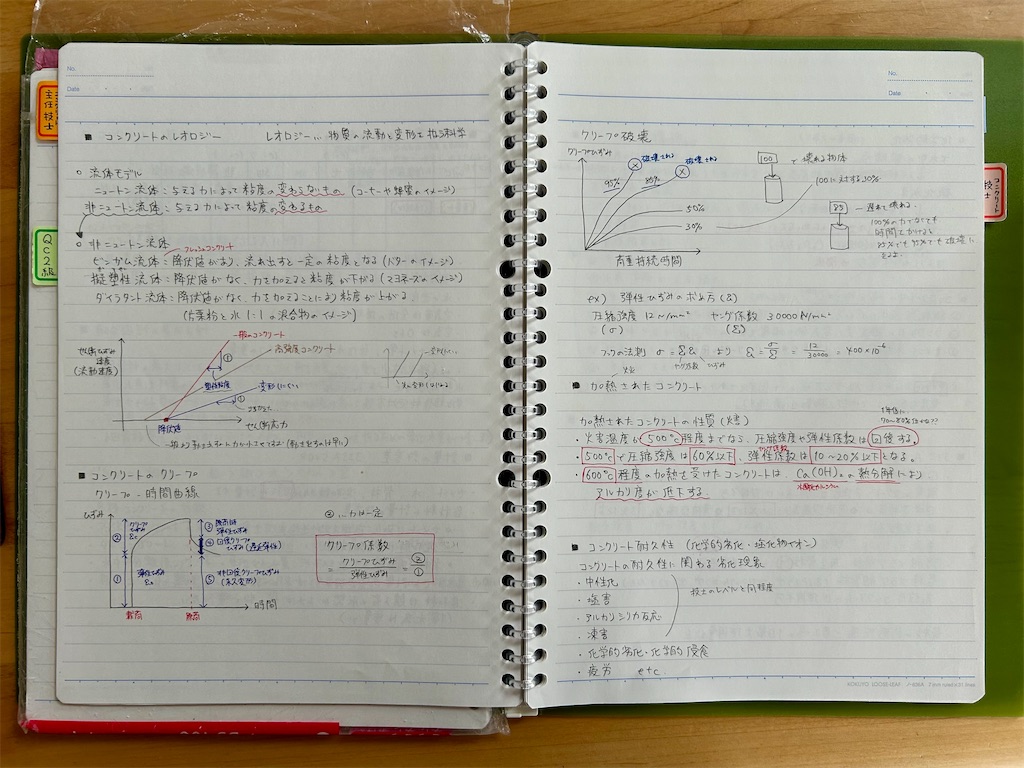 主任技士
QC2級
No.
Date
■ コンクリートのレオロジー レオロジー… 物質の流動と変形を扱う科学
○ 流体モデル
ニュートン流体：与える力によって粘度の変わらないもの (コーヒーや蜂蜜のイメージ)
非ニュートン流体：与える力によって粘度の変わるもの
○ 非ニュートン流体
フレッシュコンクリート
ビンガム流体：降伏値があり、流れ出すと一定の粘度となる (バターのイメージ)
擬塑性流体：降伏値がなく、力を加えると粘度が下がる (マヨネーズのイメージ)
ダイラタント流体：降伏値がなく、力を加えることにより粘度が上がる
(片栗粉と水 1:1 の混合物のイメージ)
せん断ひずみ速度
(流動速度)
一般のコンクリート
高強度コンクリート
①
塑性粘度
変形しにくい
①
降伏値
せん断応力
■ コンクリートのクリープ
クリープ - 時間曲線
ひずみ
② クリープひずみ εc
① 弾性ひずみ εe
③ 除荷時弾性ひずみ
④ 回復クリープひずみ (遅延弾性)
⑤ 非回復クリープひずみ (永久変形)
載荷
除荷
時間
② … 力は一定
クリープ係数
= クリープひずみ / 弾性ひずみ = ② / ①
No.
Date
コンクリート技士
クリープ破壊
クリープひずみ
破壊される
破壊される
95%
85%
50%
30%
荷重持続時間
100
で壊れる物体
100に対する30%
85
遅れて壊れる。
100%の力でなくても
時間をかけると
■ ex) 弾性ひずみの求め方 (ε)
圧縮強度 12N/mm² ヤング係数 30000N/mm²
(σ) (E)
フックの法則 σ = Eε より ε = σ/E = 12/30000 = 400×10⁻⁶
応力 ヤング係数 ひずみ
■ 加熱されたコンクリート
加熱されたコンクリートの性質 (火害)
・火害温度が500℃程度までなら、圧縮強度や弾性係数は回復する。
ヤング係数
・500℃で圧縮強度は60%以下、弾性係数は10〜20%以下となる。
・600℃程度の加熱を受けたコンクリートは、Ca(OH)₂の熱分解により
水酸化カルシウム
アルカリ度が低下する。
■ コンクリート耐久性 (化学的劣化・塩化物イオン)
コンクリートの耐久性に関わる劣化現象
・中性化
・塩害
・アルカリシリカ反応
・凍害
技士のレベルと同程度
・化学的劣化・化学的侵食
・疲労 etc.